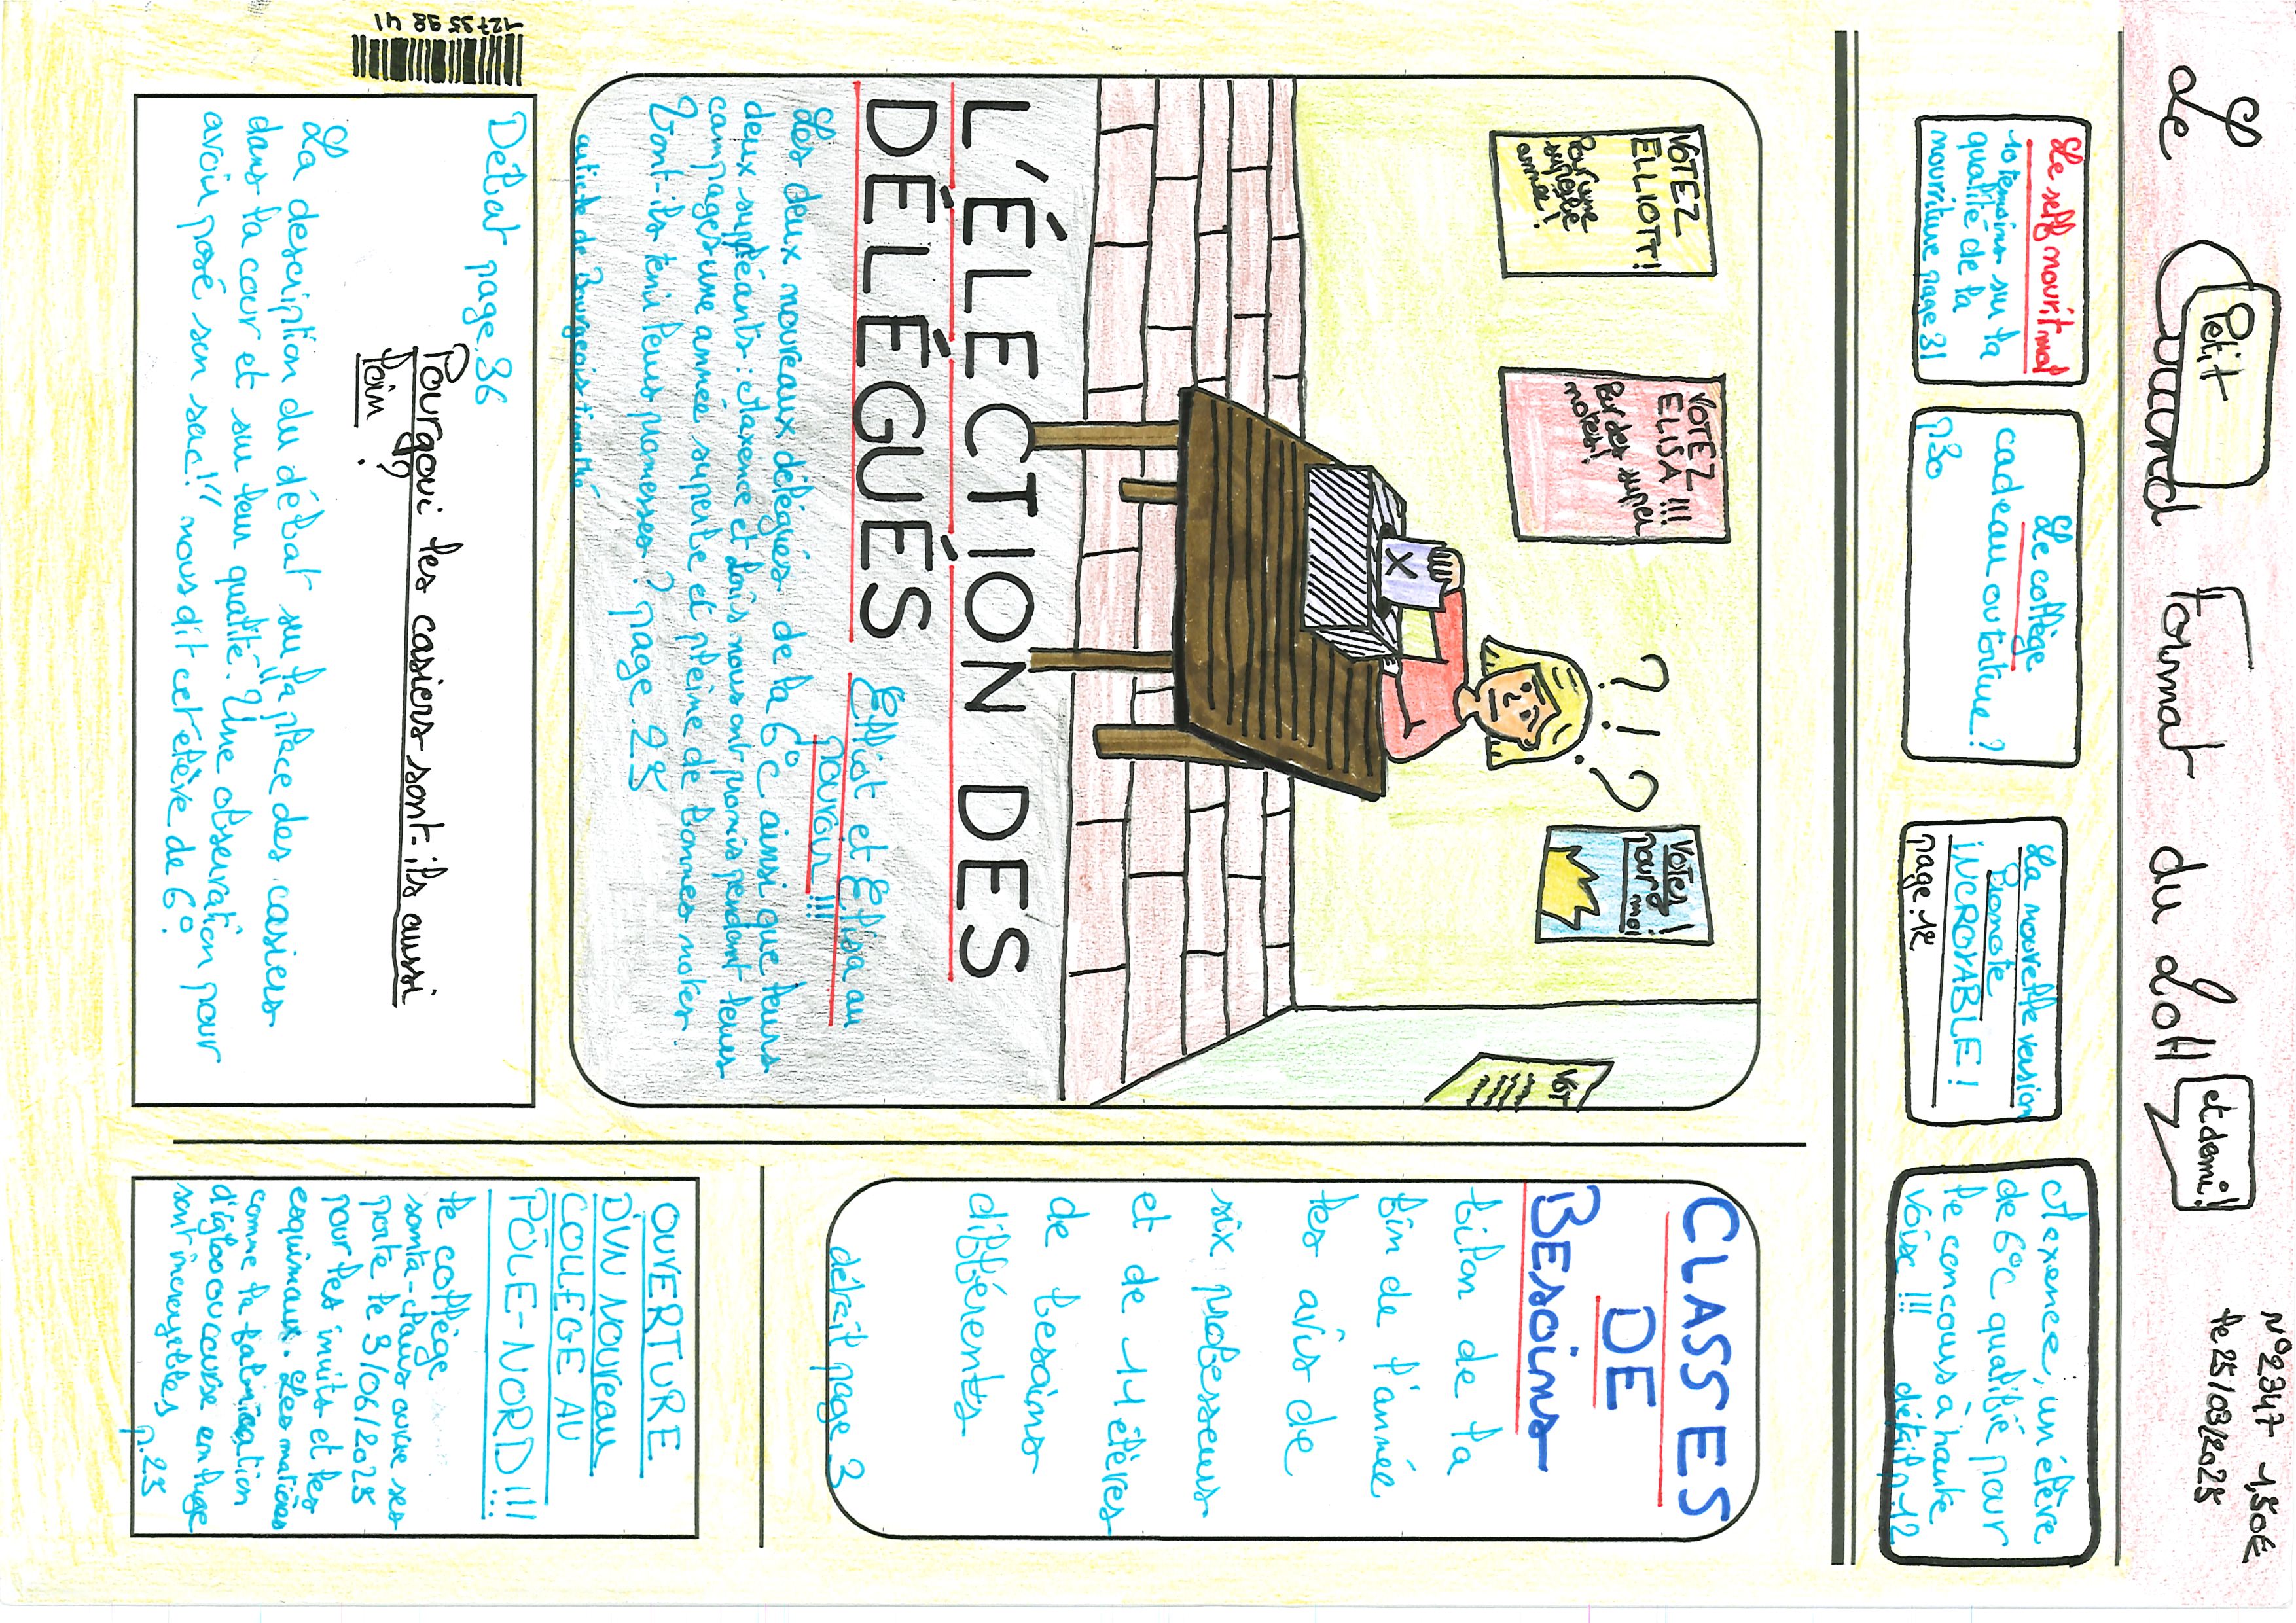 Le Grand Format du Loll
Petit
et demi!
N°2347 1,50€
le 25/03/2025
Le self nourit mal
10 témoins sur la
qualité de la
nourriture page 31
Le collège
cadeau ou toiture ?
p30
La nouvelle version
Pronote
iNCROYABLE !
page.12
Maxence, un élève
de 6°C qualifié pour
le concours à haute
voix !!! détail p.12
VOTEZ
ELLIOTT!
Pour une
superbe
année !
VOTEZ
ELISA !!!
Par des super
notes!
? ! ?
X
Votez!
pour
moi
Vot
L'ÉLECTION DES
DÉLÉGUÉS
Elliot et Elisa au
pouvoir !!!
Les deux nouveaux délégués de la 6°C ainsi que leurs
deux suppléants : Maxence et Loïs nous ont promis pendant leurs
campagnes une année superbe et pleine de bonnes notes.
Vont-ils tenir leurs promesses ? page 25
article de Bourgeois
CLASSES
DE
BEsoins
bilan de la
fin de l'année
les avis de
six professeurs
et de 14 élèves
de besoins
différents
détail page 3
Débat page 36
Pourqoui les casiers sont-ils aussi
loin ?
La description du débat sur la place des casiers
dans la cour et sur leur qualité. "Une observation pour
avoir posé son sac!" nous dit cet élève de 6°
OUVERTURE
D'UN NOUVEAU
COLLÈGE AU
PÔLE-NORD !!!
le collège
somta-Paus ouvre ses
porte le 3/06/2025
pour les inuits et les
esquimaux. Les matières
comme la fabrication
d'igloo ou course en luge
sont incroyables
p.25
12735 98 41